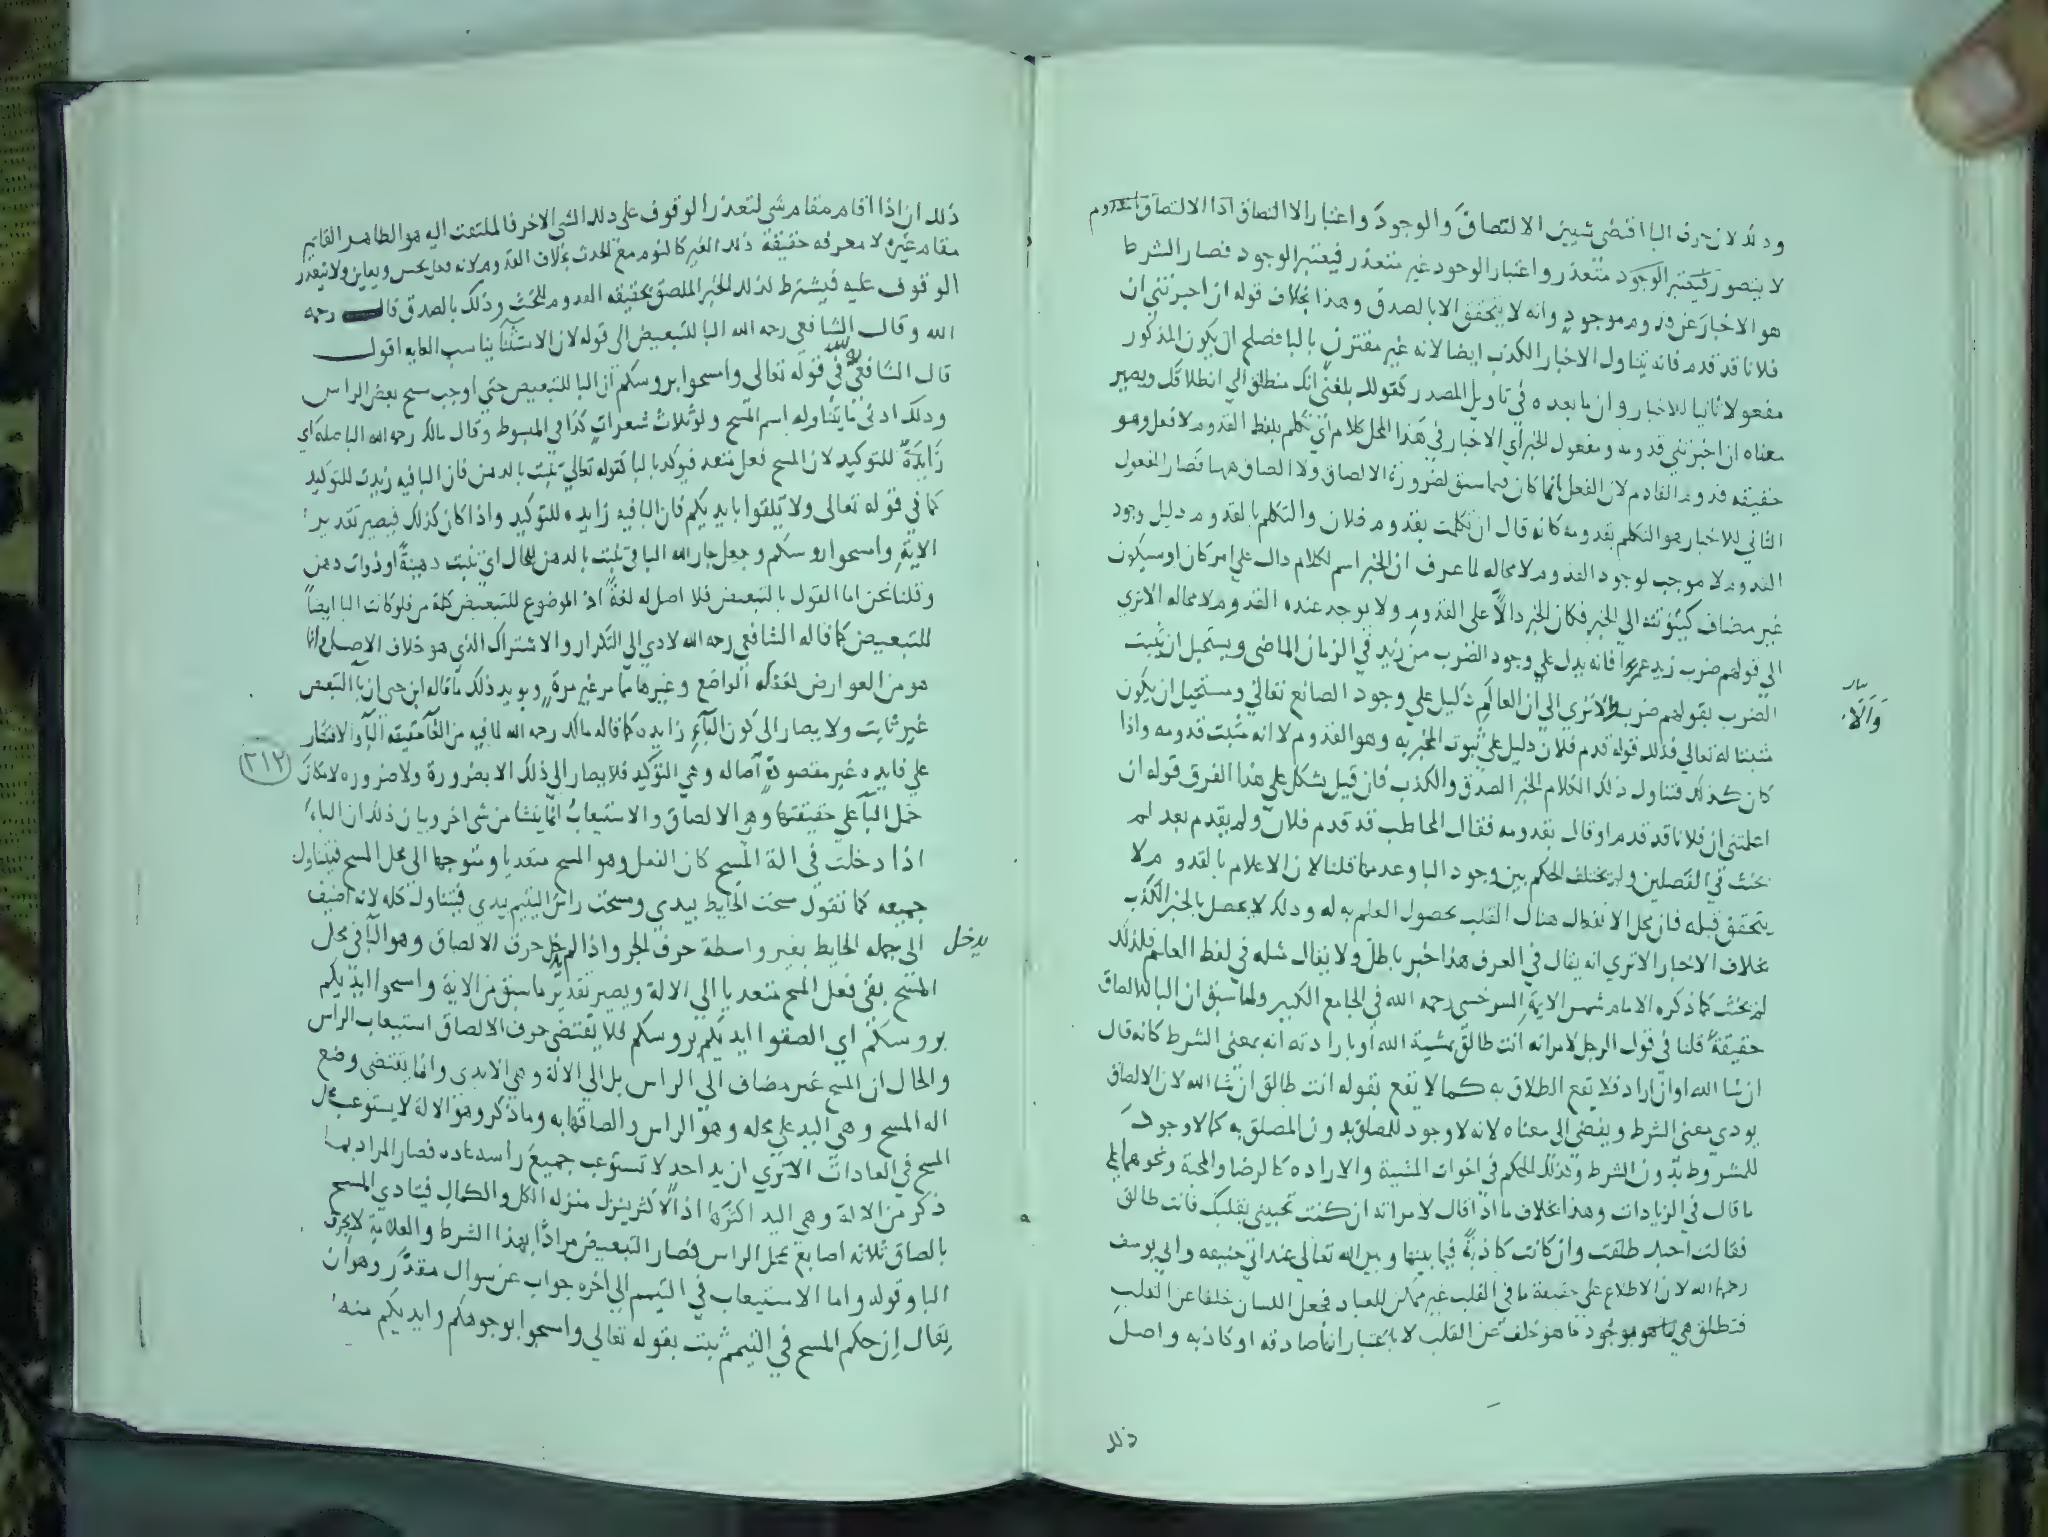 وذلك لان حرف البا اقتضى شيين الالتصاق والوجود واعتبار الالتصاق اذا الالتصاق
لا يتصور فيعتبر الوجود متعذر واعتبار الوجود غير متعذر فيعتبر الوجود فصار الشرط
هو الاخبار عن قدوم موجود وانه لا يتحقق الا بالصدق وهذا بخلاف قوله ان اخبرتني ان
فلانا قد قدم فانه يتناول الاخبار الكذب ايضا لانه غير مقترن بالبا فصلح ان يكون المذكور
مفعولا ثانيا للاخبار وان ما بعده في تاويل المصدر كقولك بلغني انك منطلق اي انطلاقك ويصير
معناه ان اخبرتني قدومه ومفعول الخبر اي الاخبار في هذا المحل كلام اي تكلم بلفظ القدوم لا فعل وهو
حقيقه قدوم القادم لان الفعل انما كان فيما سبق لضرورة الالصاق ولا الصاق ههنا فصار المفعول
الثاني للاخبار هو التكلم بقدومه كانه قال ان تكلمت بقدوم فلان والتكلم بالقدوم دليل وجود
القدوم لا موجب لوجود القدوم لا محاله لما عرف ان الخبر اسم لكلام دال على امر كان او سيكون
غير مضاف كينونته الى الخبر فكان الخبر دالا على القدوم ولا يوجد عنده القدوم لا محاله الا ترى
الى قولهم ضرب زيد عمرا فانه يدل على وجود الضرب من زيد في الزمان الماضي ويستحيل ان يثبت
الضرب بقولهم ضرب والا ترى الى ان العالم دليل على وجود الصانع تعالى ومستحيل ان يكون
مثبتا له تعالى فكذلك قوله قدم فلان دليل على ثبوت المخبر به وهو القدوم لا انه مثبت قدومه واذا
كان كذلك فتناول ذلك الكلام الخبر الصدق والكذب فان قيل يشكل على هذا الفرق قوله ان
اعلمتني ان فلانا قد قدم او قال بقدومه فقال المخاطب قد قدم فلان ولم يقدم بعد لم
يحنث في الفصلين ولم يختلف الحكم بين وجود البا وعدمها قلنا لان الاعلام بالقدوم لا
يتحقق قبله فان محل الانفعال هناك القلب بحصول العلم به له وذلك لا يحصل بالخبر الكذب
بخلاف الاخبار الا ترى انه يقال في العرف هذا خبر باطل ولا يقال مثله في لفظ العلم فلذلك
لم يحنث كما ذكره الامام شمس الايمة السرخسي رحمه الله في الجامع الكبير ولما سبق ان البا للالصاق
حقيقة قلنا في قول الرجل لامراته انت طالق بمشيئة الله او بارادته انه بمعنى الشرط كانه قال
ان شا الله او ان اراد فلا يقع الطلاق به كما لا يقع بقوله انت طالق ان شا الله لان الالصاق
يودي معنى الشرط ويفضي الى معناه لانه لا وجود للملصق بدون الملصق به كما لا وجود
للمشروط بدون الشرط وكذلك الحكم في اخوات المشية والاراده كالرضا والمحبة ونحوهما على
ما قال في الزيادات وهذا بخلاف ما اذا قال لامراته ان كنت تحبيني بقلبك فانت طالق
فقالت احبك طلقت وان كانت كاذبة فيما بينها وبين الله تعالى عند ابي حنيفه وابي يوسف
رحمهما الله لان الاطلاع على حقيقة ما في القلب غير ممكن للعباد فجعل اللسان خلفا عن القلب
فتطلق بما هو موجود مما هو خلف عن القلب لا باعتبار انها صادقه او كاذبه واصل
والا
ذلك
ذلك ان اذا اقام مقام شي لتعذر الوقوف على ذلك الشي الاخر فالملتفت اليه هو الظاهر القايم
مقام غيره لا معرفه حقيقة ذلك الغير كالنوم مع الحدث بخلاف القدوم لانه فعل يحس ويعاين ولا يتعذر
الوقوف عليه فيشترط لذلك الخبر الملصق بحقيقه القدوم للحنث وذلك بالصدق قال رحمه
الله وقال الشافعي رحمه الله البا للتبعيض الى قوله لان الاستثنا يناسب الغايه اقول
قال الشافعي في قوله تعالى وامسحوا بروسكم ان البا للتبعيض حتى اوجب مسح بعض الراس
وذلك ادنى ما يتناوله اسم المسح ولو ثلاث شعرات كذا في المبسوط وقال مالك رحمه الله البا صله اي
زايدة للتوكيد لان المسح فعل متعد فيوكد بالبا كقوله تعالى تنبت بالدهن فان البا فيه زيدت للتوكيد
كما في قوله تعالى ولا تلقوا بايديكم فان البا فيه زايده للتوكيد واذا كان كذلك فيصير تقدير
الاية وامسحوا روسكم وجعل جار الله البا في تنبت بالدهن للحال اي تنبت دهينة او ذوات دهن
وقلنا نحن اما القول بالتبعيض فلا اصل له لغة اذ الموضوع للتبعيض كلمة من فلو كانت البا ايضا
للتبعيض كما قاله الشافعي رحمه الله لادى الى التكرار والاشتراك الذي هو خلاف الاصل وانما
هو من العوارض لغفلة الواضع وغيرها مما مر غير مرة ويويد ذلك ما قاله ابن جني ان با التبعيض
غير ثابت ولا يصار الى كون الباء زايده كما قاله مالك رحمه الله لما فيه من الغا حقيقة البا والاقتصار
على فايده غير مقصودة اصاله وهي التوكيد فلا يصار الى ذلك الا بضرورة ولا ضروره لامكان
٢١٢
حمل البا على حقيقتها وهي الالصاق والاستيعاب انما ينشا من شي اخر وبيان ذلك ان الباء
اذا دخلت في الة المسح كان الفعل وهو المسح متعديا ومتوجها الى محل المسح فيتناول
جميعه كما تقول مسحت الحايط بيدي ومسحت راس اليتيم بيدي فيتناول كله لانه اضيف
الى جمله الحايط بغير واسطة حرف الجر واذا لم يدخل حرف الالصاق وهو البا في محل
يدخل
المسح بقي فعل المسح متعديا الى الالة ويصير تقدير ما سبق من الاية وامسحوا ايديكم
بروسكم اي الصقوا ايديكم بروسكم فلا يقتضي حرف الالصاق استيعاب الراس
والحال ان المسح غير مضاف الى الراس بل الى الالة وهي الايدي وانما يقتضي وضع
اله المسح وهي اليد على محله وهو الراس والصاقها به وما ذكر وهو الالة لا يستوعب محل
المسح في العادات الا ترى ان يد احد لا تستوعب جميع راسه عاده فصار المراد بما
ذكر من الالة وهي اليد اكثرها اذ الاكثر ينزل منزله الكل والكمال فيتادي المسح
بالصاق ثلاثه اصابع بمحل الراس فصار التبعيض مرادا بهذا الشرط والعلامة لا بحرف
البا وقوله واما الاستيعاب في التيمم الى اخره جواب عن سوال مقدر وهو ان
يقال ان حكم المسح في التيمم ثبت بقوله تعالى وامسحوا بوجوهكم وايديكم منه